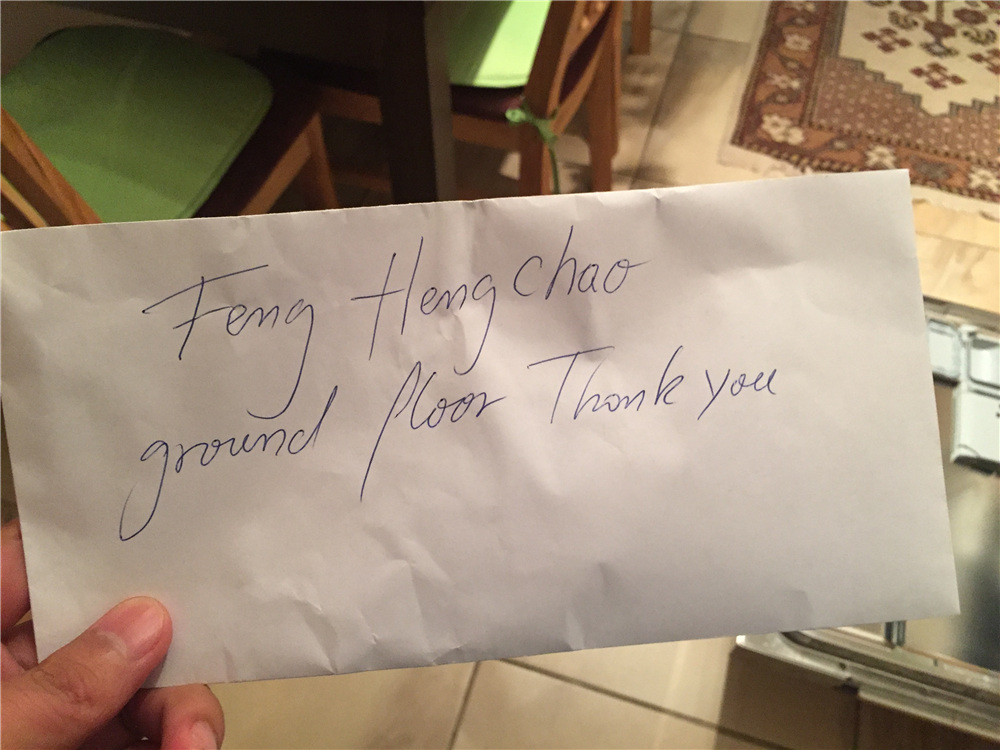 Feng Hengchao
ground floor Thank you